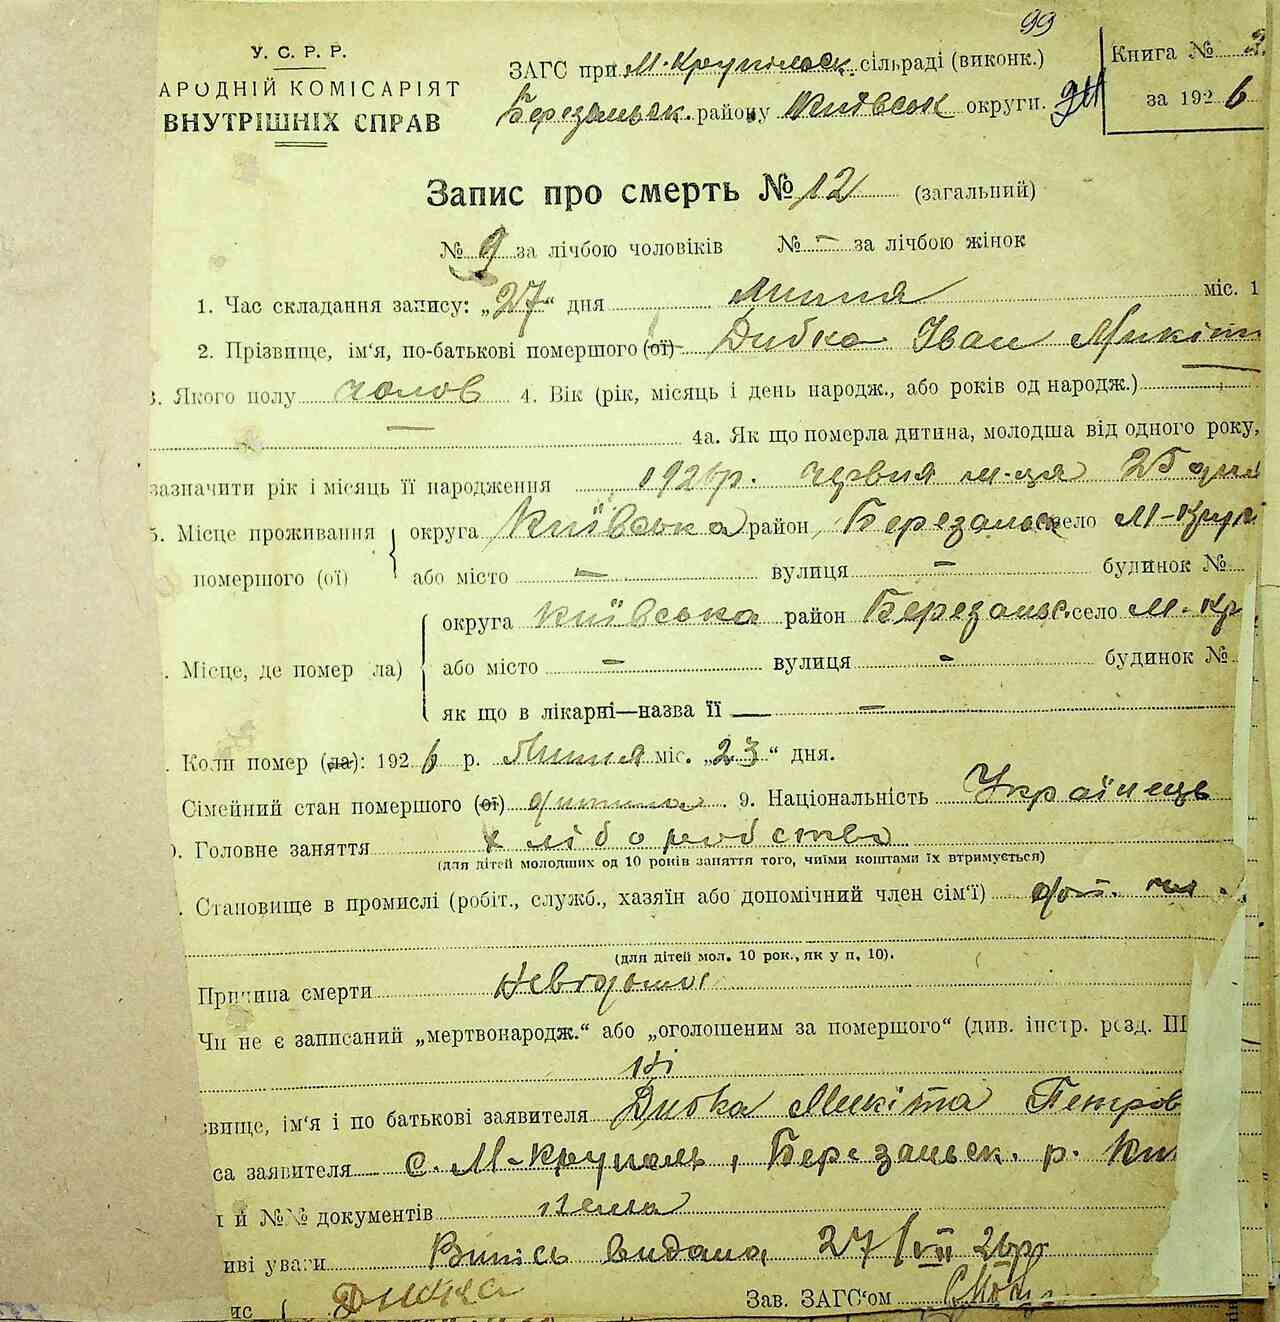 99
У. С. Р. Р.
АРОДНІЙ КОМІСАРІЯТ
ВНУТРІШНІХ СПРАВ
ЗАГС при М-Крупольск. сільраді (виконк.)
Березанськ. району Київськ округи.
Книга №
за 1926
Запис про смерть № 12 (загальний)
№ 9 за лічбою чоловіків № – за лічбою жінок
1. Час складання запису: „27“ дня липня міс. 1
2. Прізвище, ім'я, по-батькові помершого (ої) Дибка Іван Микіт
3. Якого полу чолов 4. Вік (рік, місяць і день народж., або років од народж.)
4а. Як що померла дитина, молодша від одного року,
зазначити рік і місяць її народження 1926р. червня м-ця 25 дня
5. Місце проживання помершого (ої) округа Київська район Березанськ село М-Круп
або місто – вулиця – будинок №
. Місце, де помер ла) округа Київська район Березанськ. село М-Кр
або місто – вулиця – будинок №
як що в лікарні—назва її —
. Коли помер (ла): 1926 р. Липня міс. „23“ дня.
Сімейний стан помершого (ої) дитина 9. Національність Українець
). Головне заняття хліборобство
(для дітей молодших од 10 років заняття того, чиїми коштами їх втримується)
. Становище в промислі (робіт., служб., хазяїн або допомічний член сім'ї)
(для дітей мол. 10 рок., як у п. 10).
Причина смерти
Чи не є записаний „мертвонародж.“ або „оголошеним за помершого“ (див. інстр. розд. III
Ні
звище, ім'я і по батькові заявителя Дибка Микіта Петров
са заявителя с. М-Круполь, Березанськ. р. Ки
і й №№ документів нема
иві уваги Випісь видана 27/VII 26р
ис Дибка Зав. ЗАГС'ом